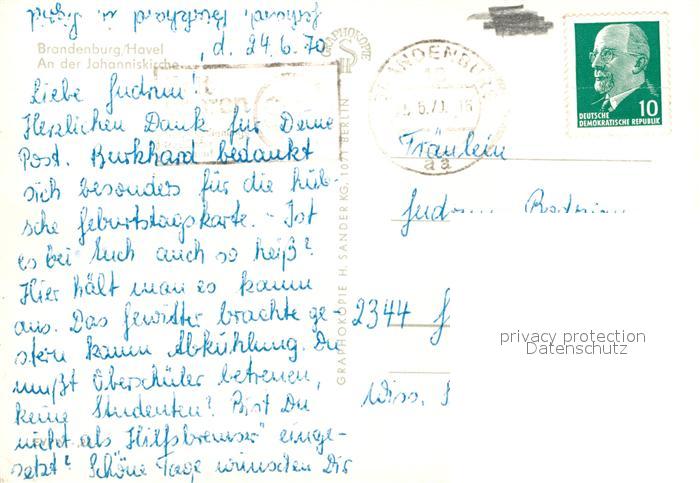 Brandenburg/Havel
An der Johanniskirche
, d. 24.6.70
Liebe Gudrun!
Herzlichen Dank für Deine
Post. Burkhard bedankt
sich besonders für die hüb-
sche Geburtstagskarte. - Ist
es bei Euch auch so heiß?
Hier hält man es kaum
aus. Das Gewitter brachte ge-
stern kaum Abkühlung. Du
mußt Oberschüler betreuen,
keine Studenten? Bist Du
nicht als „Hilfsbremser" einge-
setzt? Schöne Tage wünschen Dir
Burkhard u. Sigrid
GRAPHOKOPIE
GRAPHOKOPIE H. SANDER KG, 1071 BERLIN
BRANDENBU
aa
DEUTSCHE
DEMOKRATISCHE REPUBLIK
10
Fräulein
Gudrun
2344 G
Wiss.
privacy protection
Datenschutz